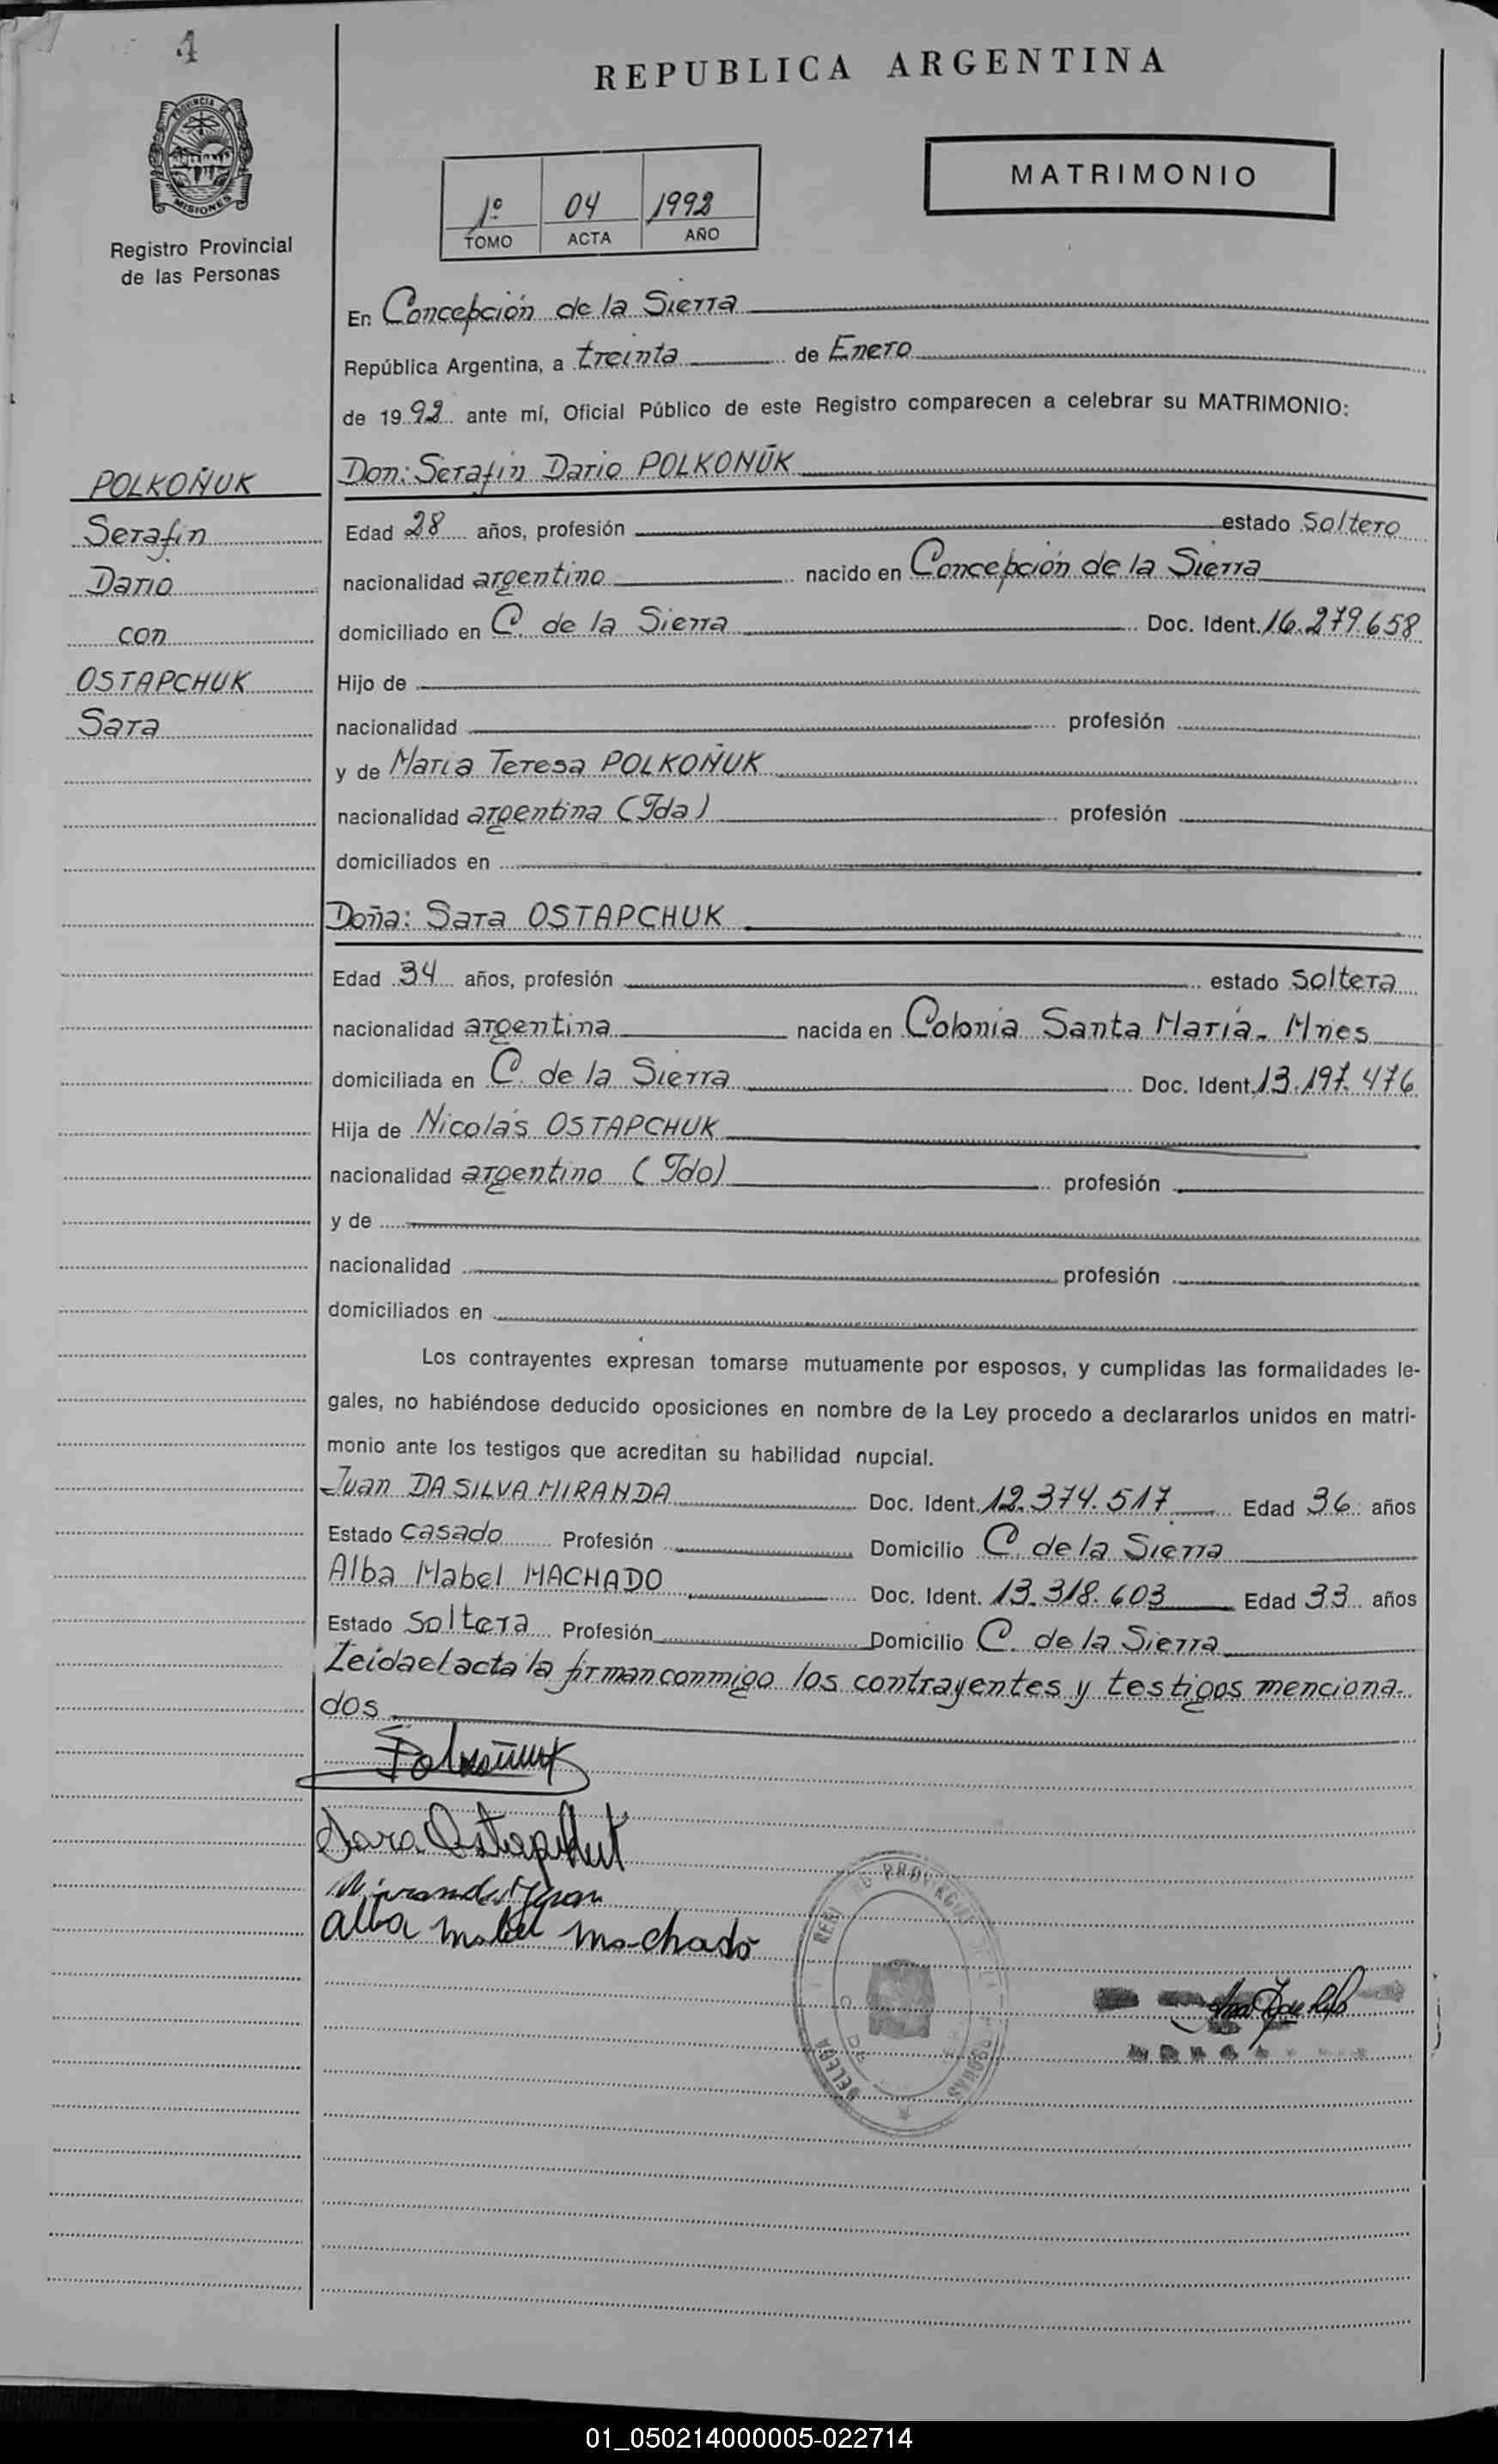 4
REPUBLICA ARGENTINA
PROVINCIA DE
MISIONES
Registro Provincial
de las Personas
MATRIMONIO
1º 04 1992
TOMO ACTA AÑO
En Concepción de la Sierra
República Argentina, a treinta de Enero
de 1992 ante mí, Oficial Público de este Registro comparecen a celebrar su MATRIMONIO:
POLKOÑUK
Serafin
Dario
con
OSTAPCHUK
Sara
Don: Serafin Dario POLKOÑUK
Edad 28 años, profesión estado Soltero
nacionalidad argentino nacido en Concepción de la Sierra
domiciliado en C. de la Sierra Doc. Ident. 16.279.658
Hijo de
nacionalidad profesión
y de Maria Teresa POLKOÑUK
nacionalidad argentina (Fda) profesión
domiciliados en
Doña: Sara OSTAPCHUK
Edad 34 años, profesión estado soltera
nacionalidad argentina nacida en Colonia Santa María - Mnes
domiciliada en C. de la Sierra Doc. Ident. 13.197.476
Hija de Nicolás OSTAPCHUK
nacionalidad argentino (Fdo) profesión
y de
nacionalidad profesión
domiciliados en
Los contrayentes expresan tomarse mutuamente por esposos, y cumplidas las formalidades le-
gales, no habiéndose deducido oposiciones en nombre de la Ley procedo a declararlos unidos en matri-
monio ante los testigos que acreditan su habilidad nupcial.
Juan DA SILVA MIRANDA Doc. Ident. 12.374.517 Edad 36 años
Estado casado Profesión Domicilio C. de la Sierra
Alba Mabel MACHADO Doc. Ident. 13.318.603 Edad 33 años
Estado soltera Profesión Domicilio C. de la Sierra
Leida el acta la firman conmigo los contrayentes y testigos menciona-
dos
Polkoñuk
Sara Ostapchuk
Miranda Juan
alba mabel machado
01_050214000005-022714